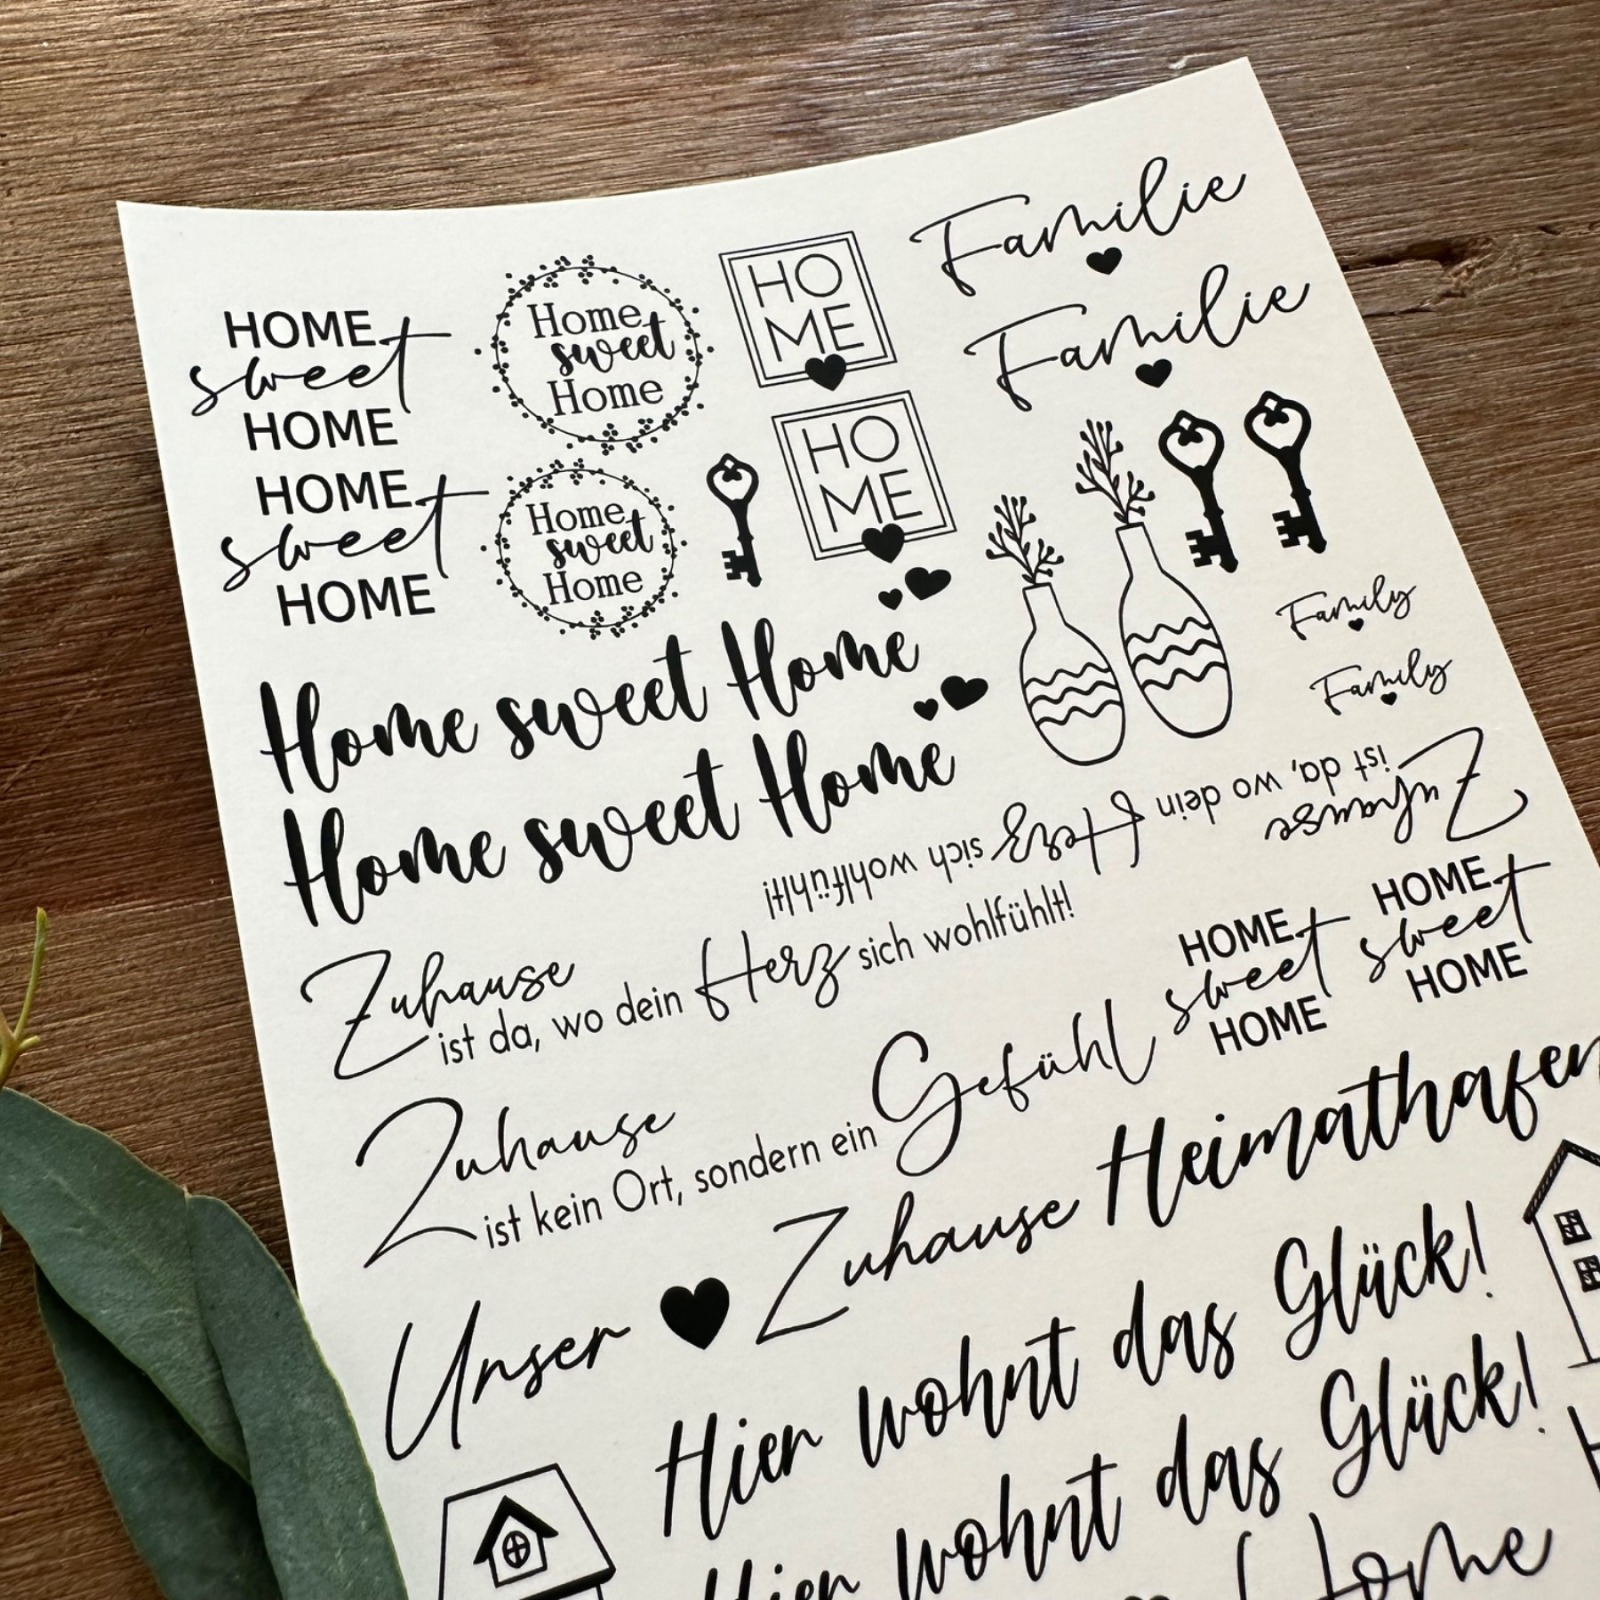 HOME
sweet
HOME
HOME
sweet
HOME
Home
sweet
Home
Home
sweet
Home
HO
ME
HO
ME
Familie
Familie
Family
Family
Home sweet Home
Home sweet Home
Zuhause
ist da, wo dein Herz sich wohlfühlt!
Zuhause
ist da, wo dein Herz sich wohlfühlt!
HOME
sweet
HOME
HOME
sweet
HOME
Zuhause
ist kein Ort, sondern ein Gefühl
Unser Zuhause Heimathafen
Hier wohnt das Glück!
Hier wohnt das Glück!
Home